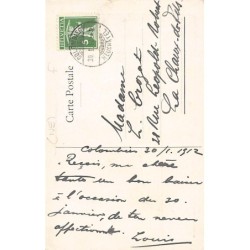 Carte Postale
Madame
L. Crozat
Rue Léopold Robert
La Chaux-de-
Colombier 20/1. 1912
Reçois, ma chère
tante un bon baiser
à l'occasion du 20
janvier, de ton neveu
affectionné. Louis